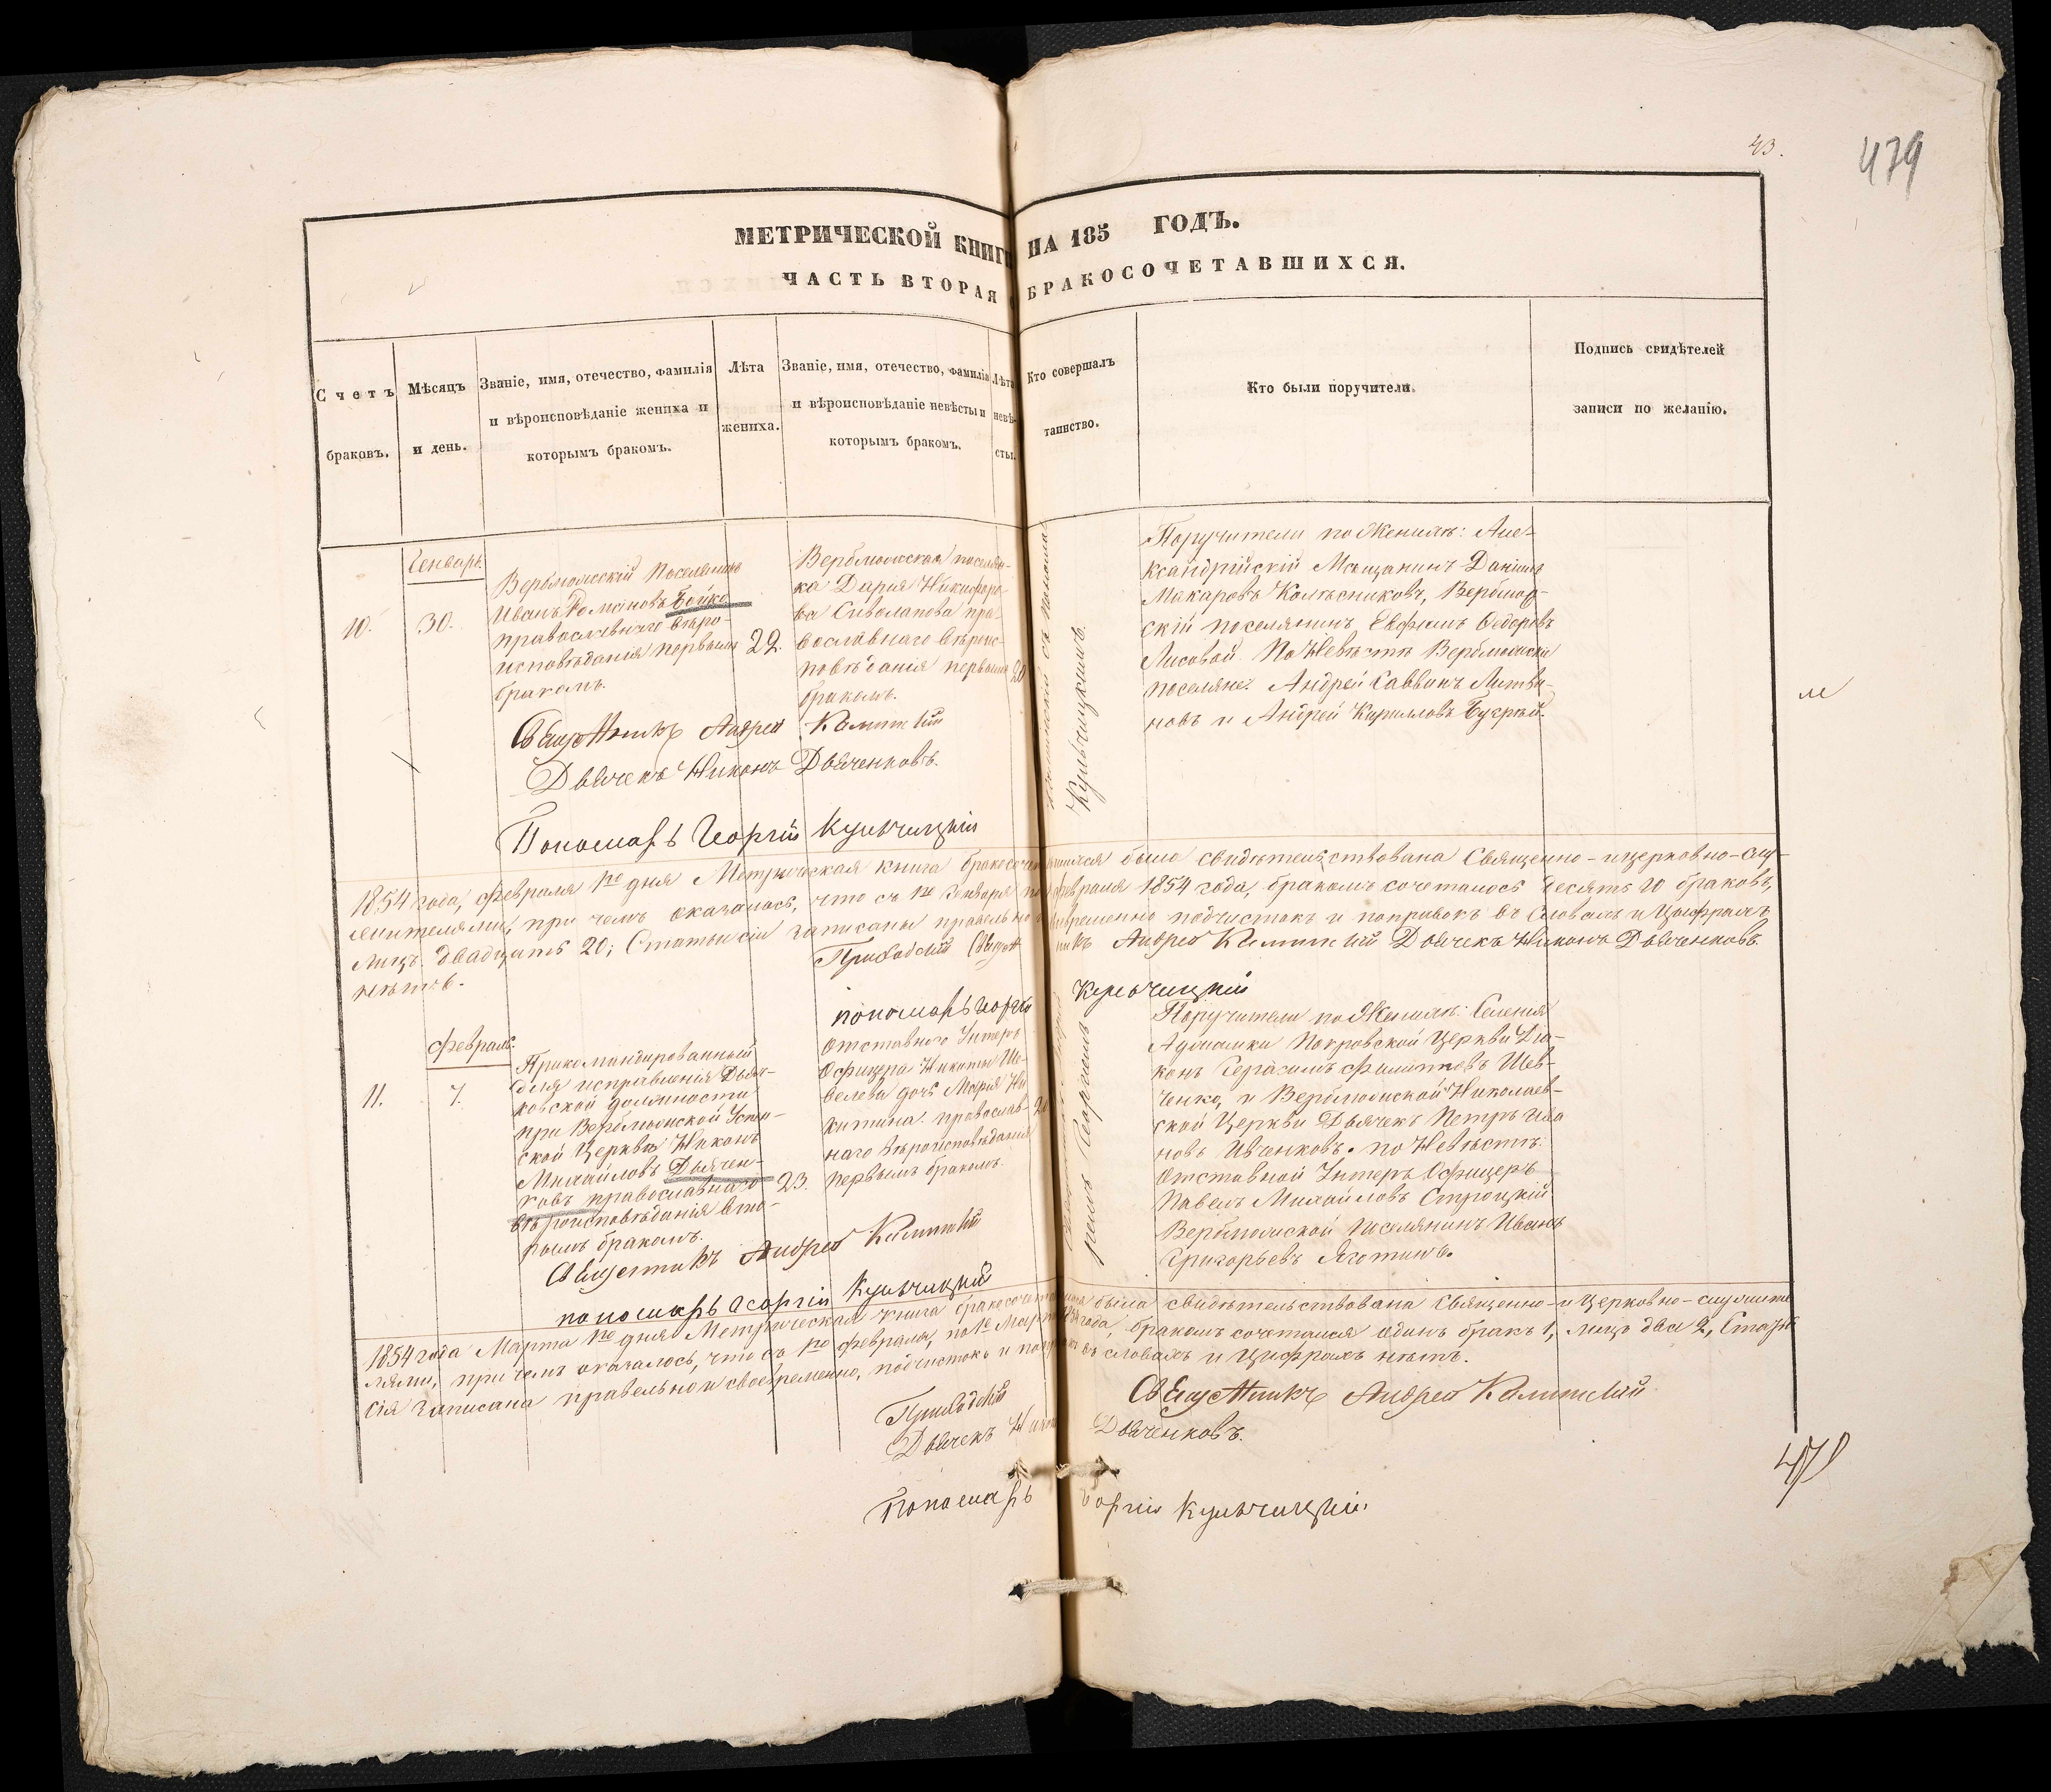 43.
479
МЕТРИЧЕСКОЙ КНИГИ НА 185 ГОДЪ.
ЧАСТЬ ВТОРАЯ О БРАКОСОЧЕТАВШИХСЯ.
Счетъ
браковъ.
Мѣсяцъ
и день.
Званіе, имя, отечество, фамилія
и вѣроисповѣданіе жениха и
которымъ бракомъ.
Лѣта
жениха.
Званіе, имя, отечество, фамилія
и вѣроисповѣданіе невѣсты и
которымъ бракомъ.
Лѣта
невѣ-
сты.
Кто совершалъ
таинство.
Кто были поручители.
Подпись свидѣтелей
записи по желанію.
Генварь.
10.
30.
Верблюжскій Поселянинъ
Иванъ Романовъ Бойко
православнаго вѣро-
исповѣданія первымъ
бракомъ.
22.
Верблюжская поселян-
ка Дарія Никифоро-
ва Сиволапова пра-
вославнаго вѣроис-
повѣданія первымъ
бракомъ.
20
Кульчицкимъ.
Поручители по Женихѣ: Але-
ксандрійскій Мѣщанинъ Даніилъ
Макаровъ Колѣсниковъ, Верблюж-
скій поселянинъ Евфимъ Ѳедоровъ
Лисовой. По Невѣстѣ Верблюжски
поселяне: Андрей Саввинъ Литви-
новъ и Андрей Кирилловъ Бугрый.
Священникъ Андрей
Дьячекъ Никонъ Дьяченковъ.
Пономарь Георгій Кульчицкій
1854 года, февраля 1го дня Метрическая книга бракосочетавшихся была свидѣтельствована Священно-ицерковно-слу-
жителями, при чемъ оказалось, что съ 1го Генваря по февраля 1854 года, бракомъ сочеталось десять 10 браковъ,
лицъ двадцать 20; Статьи сіи записаны правельно и своевременно подчистокъ и поправокъ въ Словахъ и Цыфрахъ
нѣтъ.
Приходскій Священникъ Андрей Дьячекъ Никонъ Дьяченковъ.
пономарь Георгій Кульчицкій
февраль.
11.
7.
Прикомандированный
для исправленія Дьяч-
ковской должности
при Верблюжской Успен-
ской Церкви Никонъ
Михайловъ Дьячен-
ковъ православнаго
вѣроисповѣданія вто-
рымъ бракомъ.
23.
Отставного Унтеръ
Офицера Никиты
дочь Марія Ни
китина православ-
наго вѣроисповѣданія
первымъ бракомъ.
20
Георгіемъ
Поручители по Женихѣ: Селенія
Аджамки Покровской Церкви Дія-
конъ Герасимъ Филипповъ Шев-
ченко, и Верблюжской Николаев-
ской Церкви Дьячекъ Петръ Ива
новъ Иваньковъ. по Невѣстѣ:
Отставной Унтеръ Офицеръ
Павелъ Михайловъ Строцкій
Верблюжской поселянинъ Иванъ
Григорьевъ Яготинъ.
Священникъ Андрей
пономарь Георгій Кульчицкій
1854 года Марта 1го дня Метрическая книга бракосочетавшихся была свидѣтельствована Священно-и Церковно-служите
лями, при чемъ оказалось, что съ 1го февраля, по 1е Марта 1854 года, бракомъ сочетался одинъ бракъ 1, лицъ два 2, Статья
сія записана правельно и своевременно, подчистокъ и поправокъ въ словахъ и Цифрахъ нѣтъ.
Приходскій Священникъ Андрей
Дьячекъ Никонъ Дьяченковъ.
Пономарь Георгій Кульчицкій.